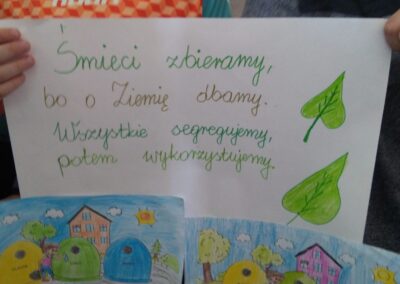 Śmieci zbieramy,
bo o Ziemię dbamy.
Wszystkie segregujemy,
potem wykorzystujemy.